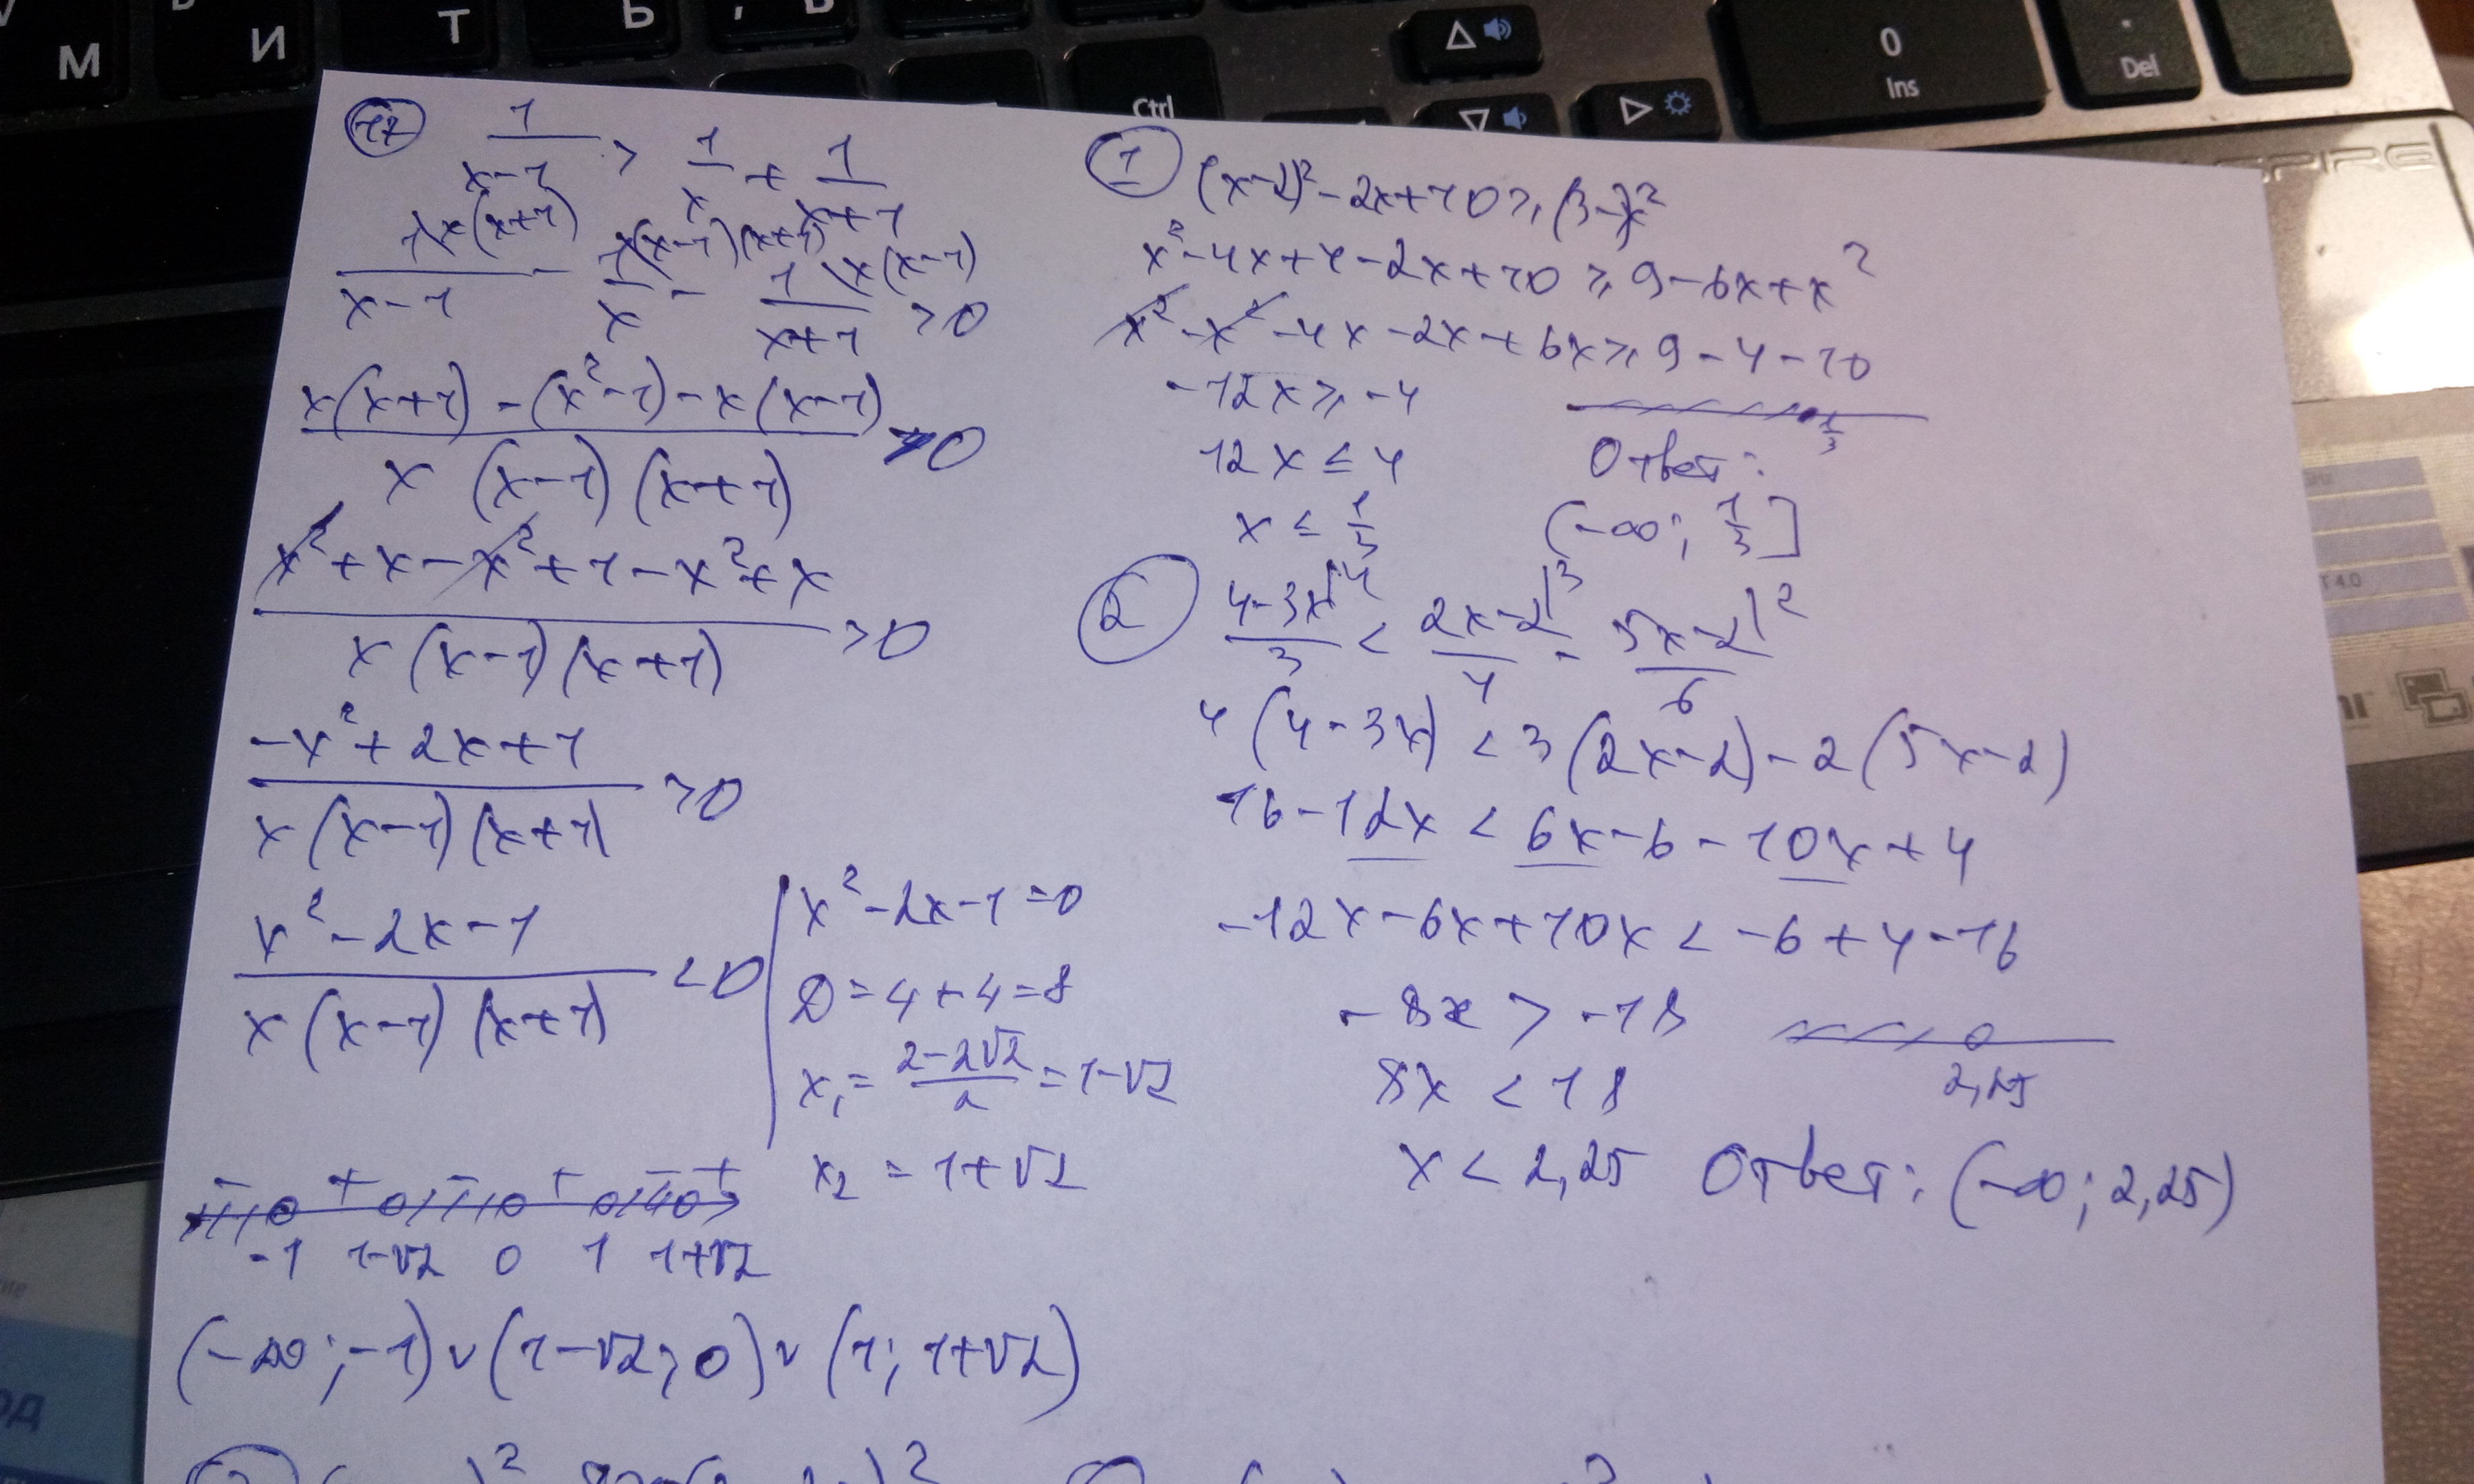 М И Т Ь , Ъ
Ctrl
0
Ins
.
Del
(17) 1/(x-1) > 1/x + 1/(x+1)
1\x(x+1)/(x-1) - 1\(x-1)(x+1)/x - 1\x(x-1)/(x+1) > 0
(x(x+1) - (x²-1) - x(x-1))/(x (x-1) (x+1)) > 0
(x² + x - x² + 1 - x² + x)/(x (x-1) (x+1)) > 0
(-x² + 2x + 1)/(x (x-1) (x+1)) > 0
(x² - 2x - 1)/(x (x-1) (x+1)) < 0
x² - 2x - 1 = 0
D = 4 + 4 = 8
x₁ = (2-2√2)/2 = 1-√2
x₂ = 1+√2
- + - + - +
-1 1-√2 0 1 1+√2
(-∞; -1) ∨ (1-√2; 0) ∨ (1; 1+√2)
(1) (x-2)² - 2x + 10 ≥ (3-x)²
x² - 4x + 4 - 2x + 10 ≥ 9 - 6x + x²
x² - x² - 4x - 2x + 6x ≥ 9 - 4 - 10
-12x ≥ -4
12x ≤ 4
x ≤ 1/3
1/3
Ответ:
(-∞; 1/3]
(2) (4-3x|4)/3 < (2x-2|3)/4 - (5x-2|2)/6
4(4-3x) < 3(2x-2) - 2(5x-2)
16 - 12x < 6x - 6 - 10x + 4
-12x - 6x + 10x < -6 + 4 - 16
-8x > -18
8x < 18
2,25
x < 2,25 Ответ: (-∞; 2,25)